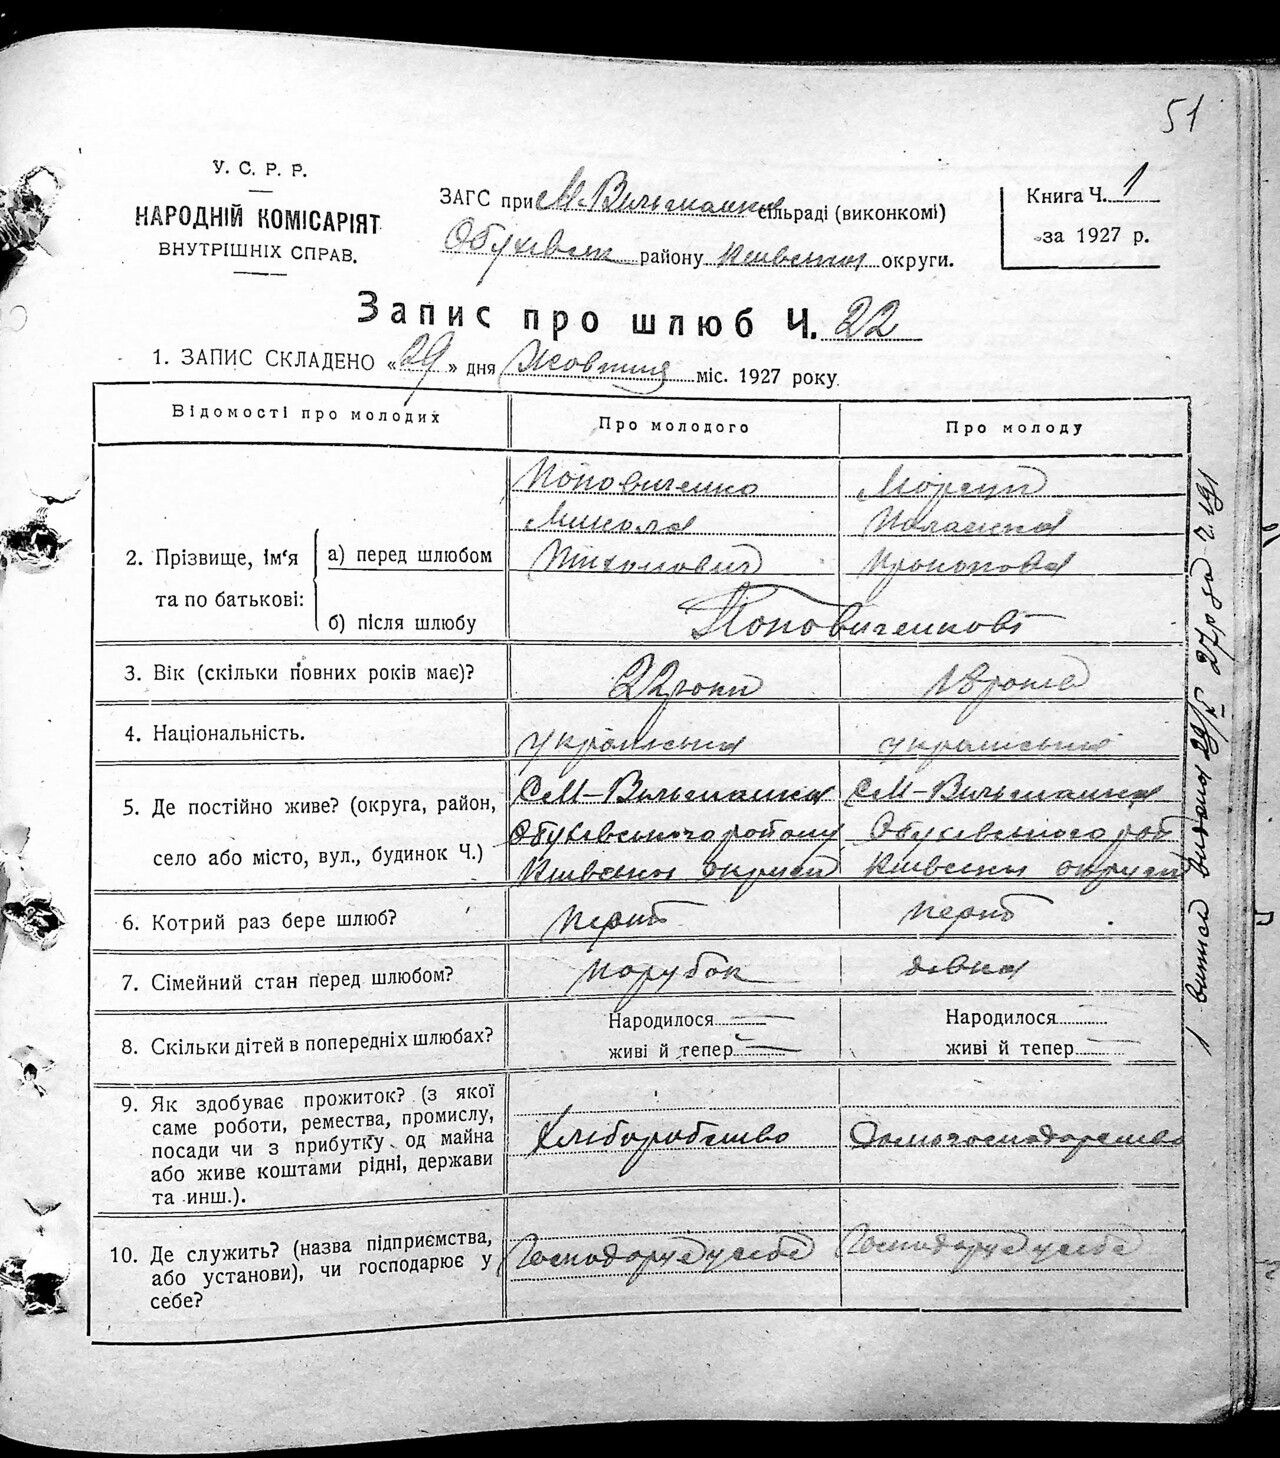 51
У. С. Р. Р.
НАРОДНІЙ КОМІСАРІЯТ
ВНУТРІШНІХ СПРАВ.
ЗАГС при М. Вильшанка сільраді (виконкомі)
району округи.
Книга Ч. 1
за 1927 р.
Запис про шлюб Ч. 22
1. ЗАПИС СКЛАДЕНО «29» дня Жовтня міс. 1927 року
Відомості про молодих
Про молодого
Про молоду
2. Прізвище, ім‘я та по батькові:
а) перед шлюбом
Поповиченко
Микола
Пилипович
Палажка
Прокопова
б) після шлюбу
Поповиченкові
3. Вік (скільки повних років має)?
22 роки
18 років
4. Національність.
українська
українська
5. Де постійно живе? (округа, район,
село або місто, вул., будинок Ч.)
С М-Вильшанка
Обухівського району
Київської округи
С М-Вильшанка
Обухівського рай
Київської округи
6. Котрий раз бере шлюб?
перший
перший
7. Сімейний стан перед шлюбом?
парубок
дівка
8. Скільки дітей в попередніх шлюбах?
Народилося —
живі й тепер —
Народилося —
живі й тепер —
9. Як здобуває прожиток? (з якої
саме роботи, ремества, промислу,
посади чи з прибутку од майна
або живе коштами рідні, держави
та инш.).
Хліборобство
Домогосподарство
10. Де служить? (назва підприємства,
або установи), чи господарює у
себе?
Господарує у себе
Господарує у себе
1 видана 29/X 27 р за ч. 191